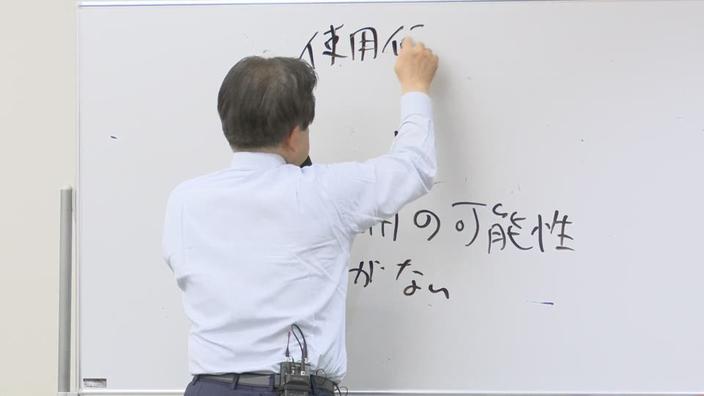 使用
の可能性
がない